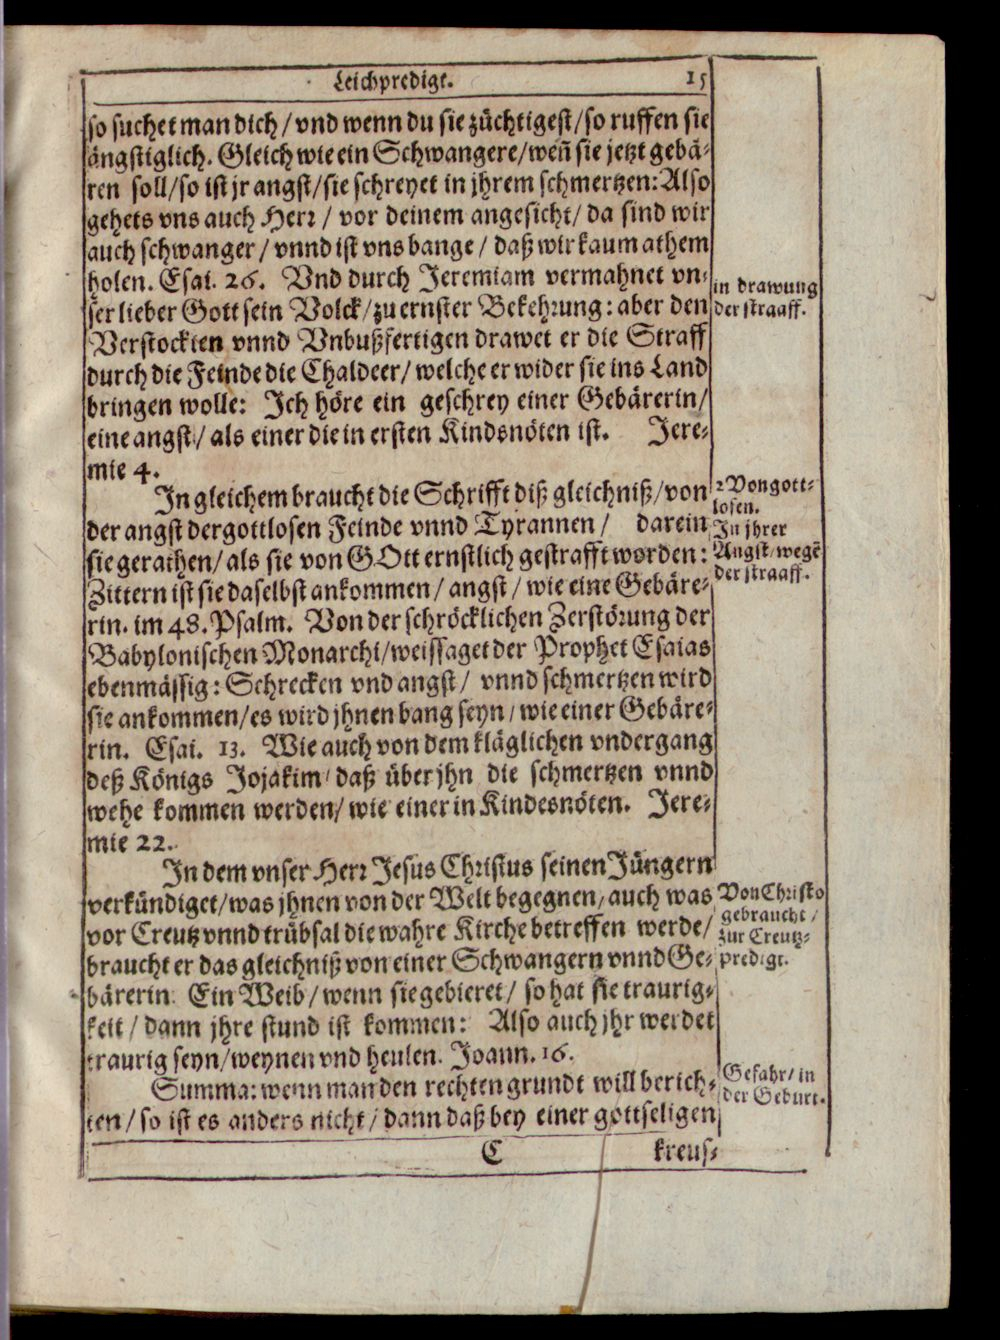 Leichpredigt. 15
so suchet man dich / vnd wenn du sie züchtigest / so ruffen sie
ängstiglich. Gleich wie ein Schwangere / weñ sie jetzt gebä-
ren soll / so ist jr angst / sie schreyet in jhrem schmertzen: Also
gehets vns auch Herr / vor deinem angesicht / da sind wir
auch schwanger / vnnd ist vns bange / daß wir kaum athem
holen. Esai. 26. Vnd durch Jeremiam vermahnet vn-
ser lieber Gott sein Volck / zu ernster Bekehrung: aber den
Verstockten vnnd Vnbußfertigen drawet er die Straff
durch die Feinde die Chaldeer / welche er wider sie ins Land
bringen wolle: Ich höre ein geschrey einer Gebärerin /
eine angst / als einer die in ersten Kindsnöten ist. Jere-
mie 4.
in drawung
der straaff.
In gleichem braucht die Schrifft diß gleichniß / von
der angst der gottlosen Feinde vnnd Tyrannen / darein
sie gerathen / als sie von GOtt ernstlich gestrafft worden:
Zittern ist sie daselbst ankommen / angst / wie eine Gebäre-
rin. im 48. Psalm. Von der schröcklichen Zerstörung der
Babylonischen Monarchi / weissaget der Prophet Esaias
ebenmässig: Schrecken vnd angst / vnnd schmertzen wird
sie ankommen / es wird jhnen bang seyn / wie einer Gebäre-
rin. Esai. 13. Wie auch von dem kläglichen vndergang
deß Königs Jojakim / daß über jhn die schmertzen vnnd
wehe kommen werden / wie einer in Kindesnöten. Jere-
mie 22.
2 Von gott-
losen.
In jhrer
Angst / wegē
der straaff.
In dem vnser Herr Jesus Christus seinen Jüngern
verkündiget / was jhnen von der Welt begegnen / auch was
vor Creutz vnnd trübsal die wahre Kirche betreffen werde /
braucht er das gleichniß von einer Schwangern vnnd Ge-
bärerin. Ein Weib / wenn sie gebieret / so hat sie traurig-
keit / dann jhre stund ist kommen: Also auch jhr werdet
traurig seyn / weynen vnd heulen. Joann. 16.
Von Christo
gebraucht /
zur Creutz-
predigt.
Summa: wenn man den rechten grundt will berich-
ten / so ist es anders nicht / dann daß bey einer gottseligen
Gefahr / in
der Geburt.
C kreus-